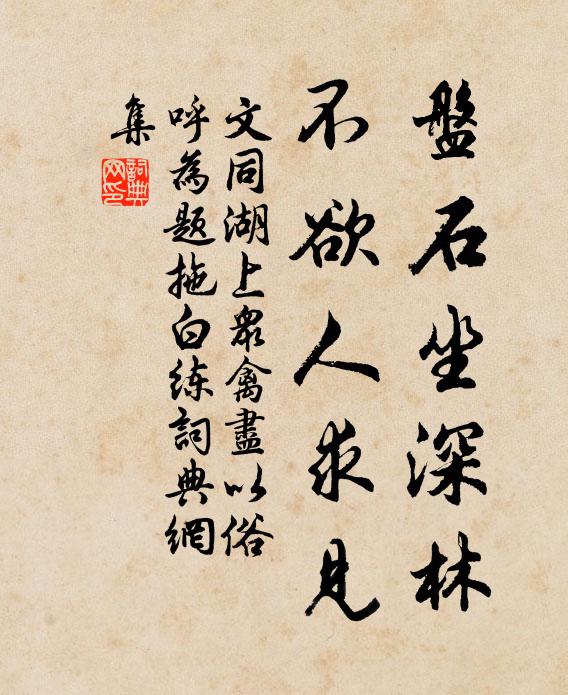 盤石坐深林
不欲人求見
文同湖上眾禽盡以俗
呼為題拖白练詞典網
集
詞典网印